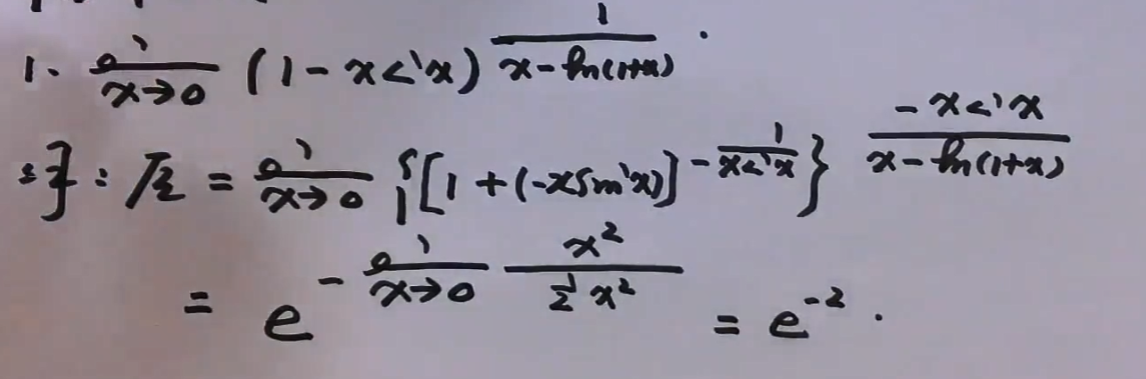 1. lim_{x→0} (1 - x sin x)^{\frac{1}{x - ln(1+x)}}.
解: 原 = lim_{x→0} {[1 + (-x sin x)]^{-\frac{1}{x sin x}}}^{\frac{-x sin x}{x - ln(1+x)}}
= e^{-lim_{x→0} \frac{x^2}{\frac{1}{2}x^2}} = e^{-2}.